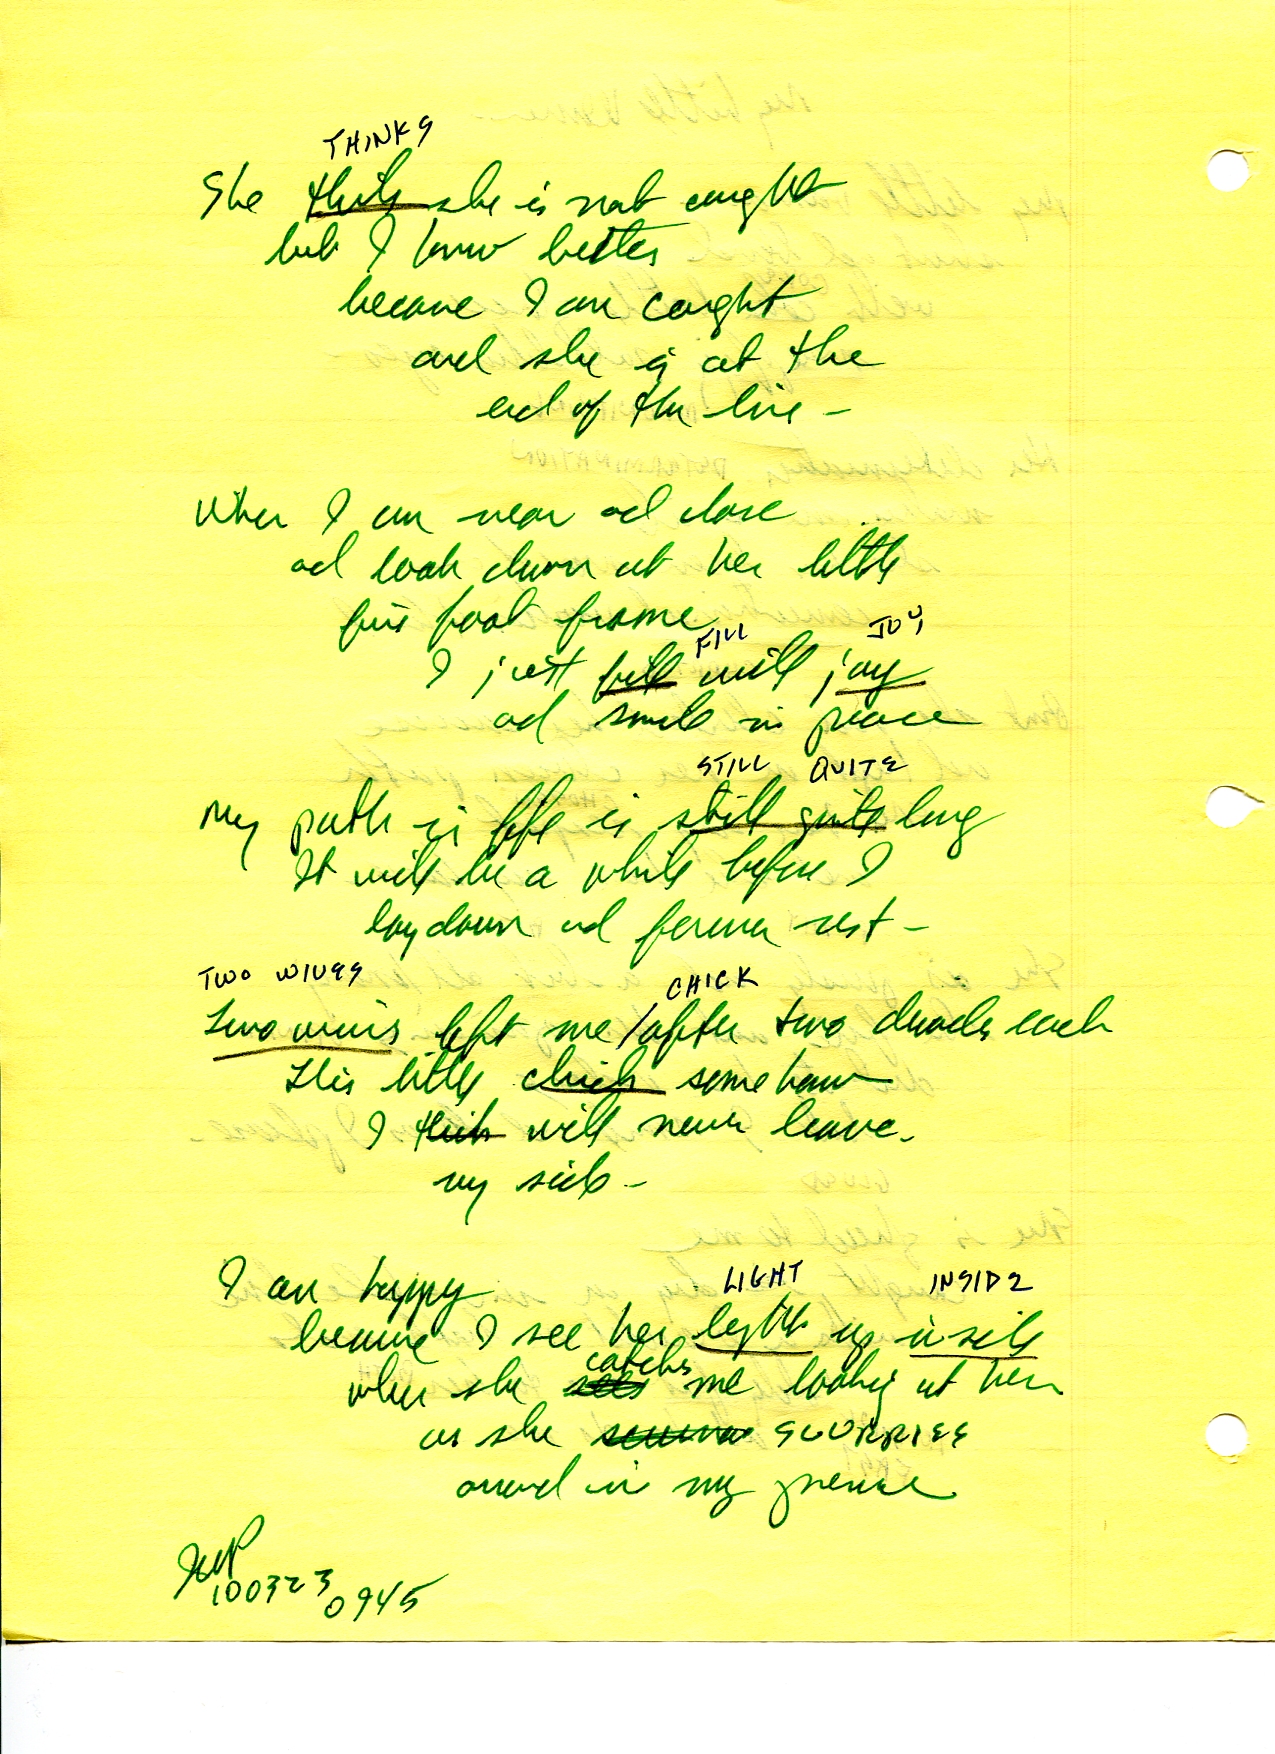 THINKS
She thinks she is not caught
but I know better
because I am caught
and she is at the
end of the line -
When I am near and close
and look down at her little
five foot frame
FILL JOY
I just fill with joy
and smile in peace
STILL QUITE
My path in life is still quite long
It will be a while before I
lay down and forever rest -
TWO WIVES CHICK
Two wives left me / after two decades each
This little chick somehow
I think will never leave.
my side -
I am happy
LIGHT INSIDE
because I see her light up inside
catches
when she sees me looking at her
as she SCURRIES
around in my presence
100323
0945